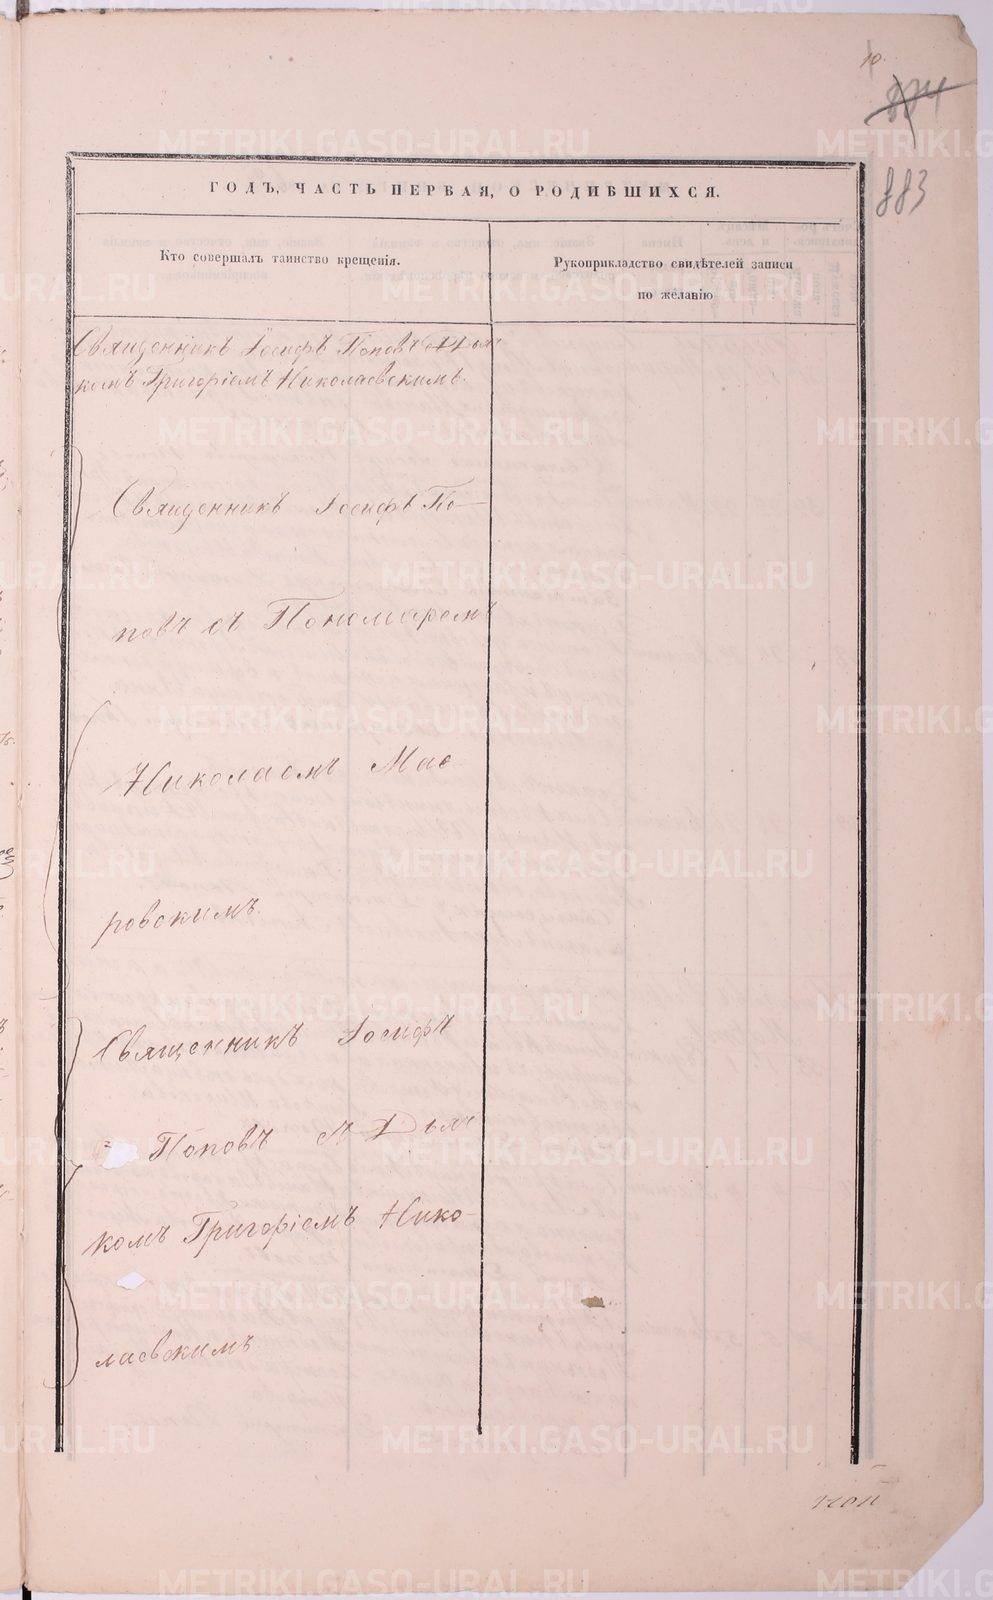 10.
884
883
ГОДЪ, ЧАСТЬ ПЕРВАЯ, О РОДИВШИХСЯ.
Кто совершалъ таинство крещенія.
Рукоприкладство свидѣтелей записи
по желанію
Священникъ Іосифъ Поповъ съ Дьяч
комъ Григоріемъ Николаевскимъ.
Священникъ Іосифъ По-
повъ съ Пономаремъ
Николаемъ Мас
ровскимъ.
Священникъ Іосифъ
Поповъ съ Дьяч
комъ Григоріемъ Нико-
лаевскимъ
METRIKI.GASO-URAL.RU